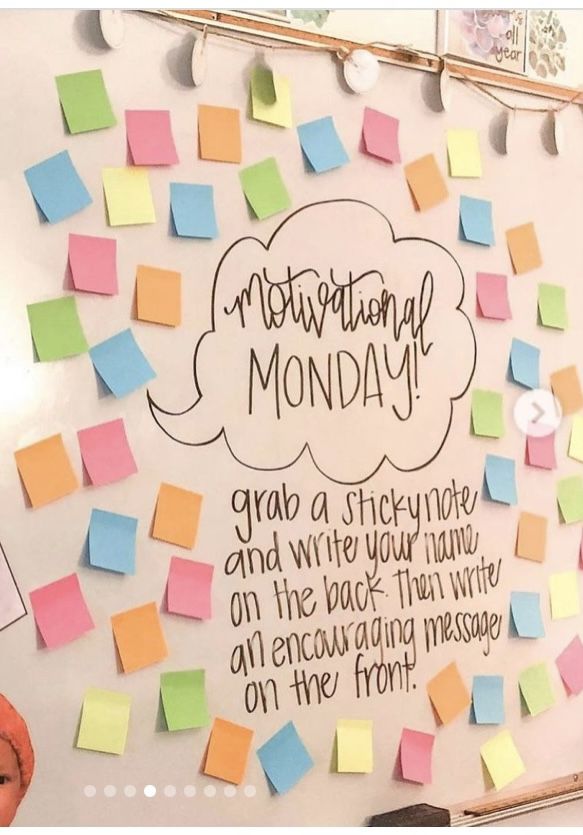 all
year
motivational
MONDAY!
grab a stickynote
and write your name
on the back. Then write
an encouraging message
on the front.